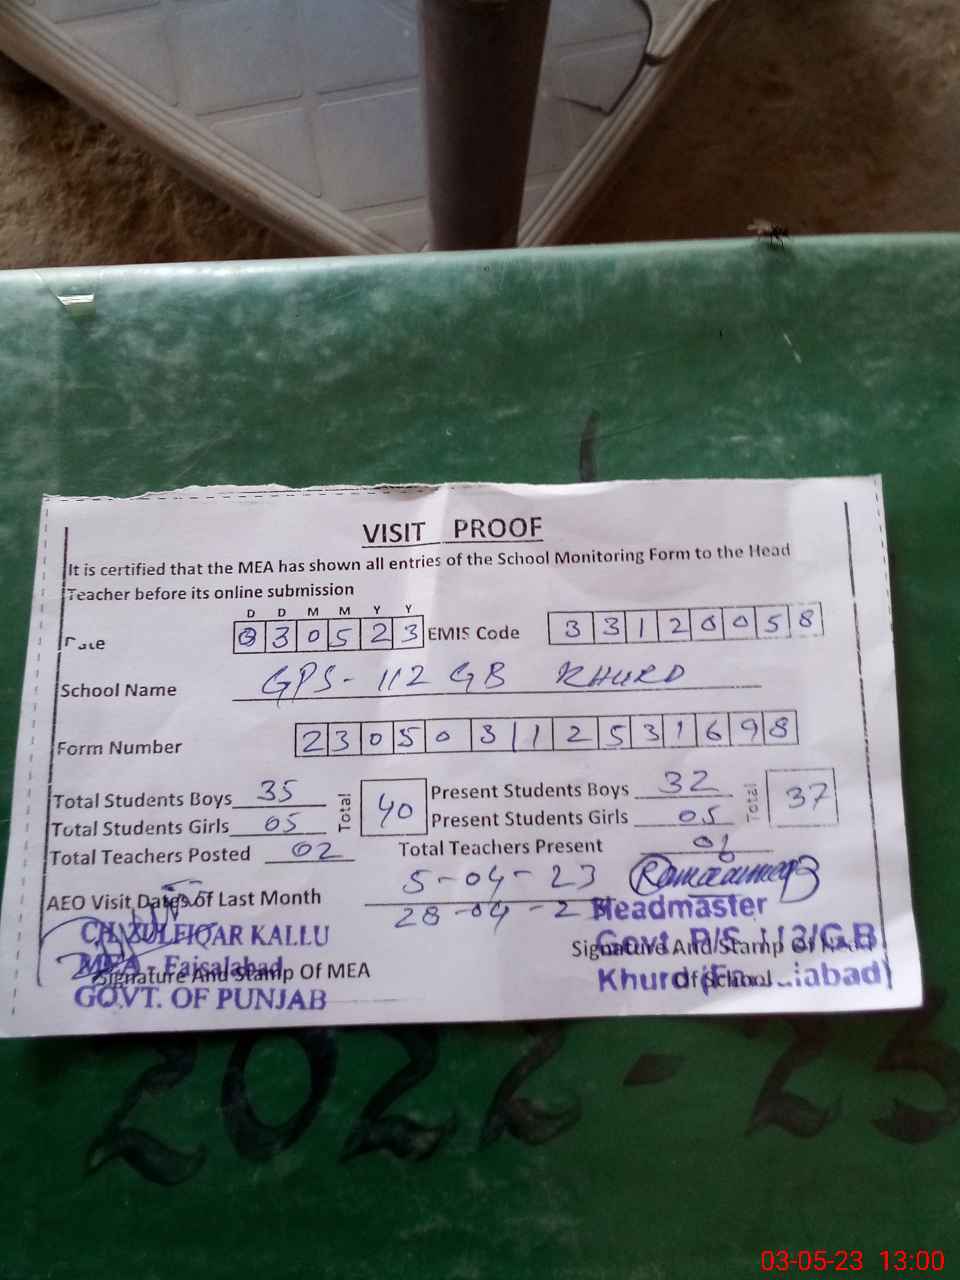 VISIT PROOF
It is certified that the MEA has shown all entries of the School Monitoring Form to the Head
Teacher before its online submission
D D M M Y Y
Date 030523 EMIS Code 33120058
School Name GPS-112 GB KHURD
Form Number 230503112531698
Total Students Boys 35 Total 40 Present Students Boys 32 Total 37
Total Students Girls 05 Present Students Girls 05
Total Teachers Posted 02 Total Teachers Present 01
AEO Visit Dates of Last Month 5-04-23
28-04-23
CH. ZULFIQAR KALLU
MEA - Faisalabad
GOVT. OF PUNJAB
Signature And Stamp Of MEA
Headmaster
Govt. P/S 112/G.B
Khurd
Signature And Stamp Of Head
of School
2022-23
03-05-23 13:00